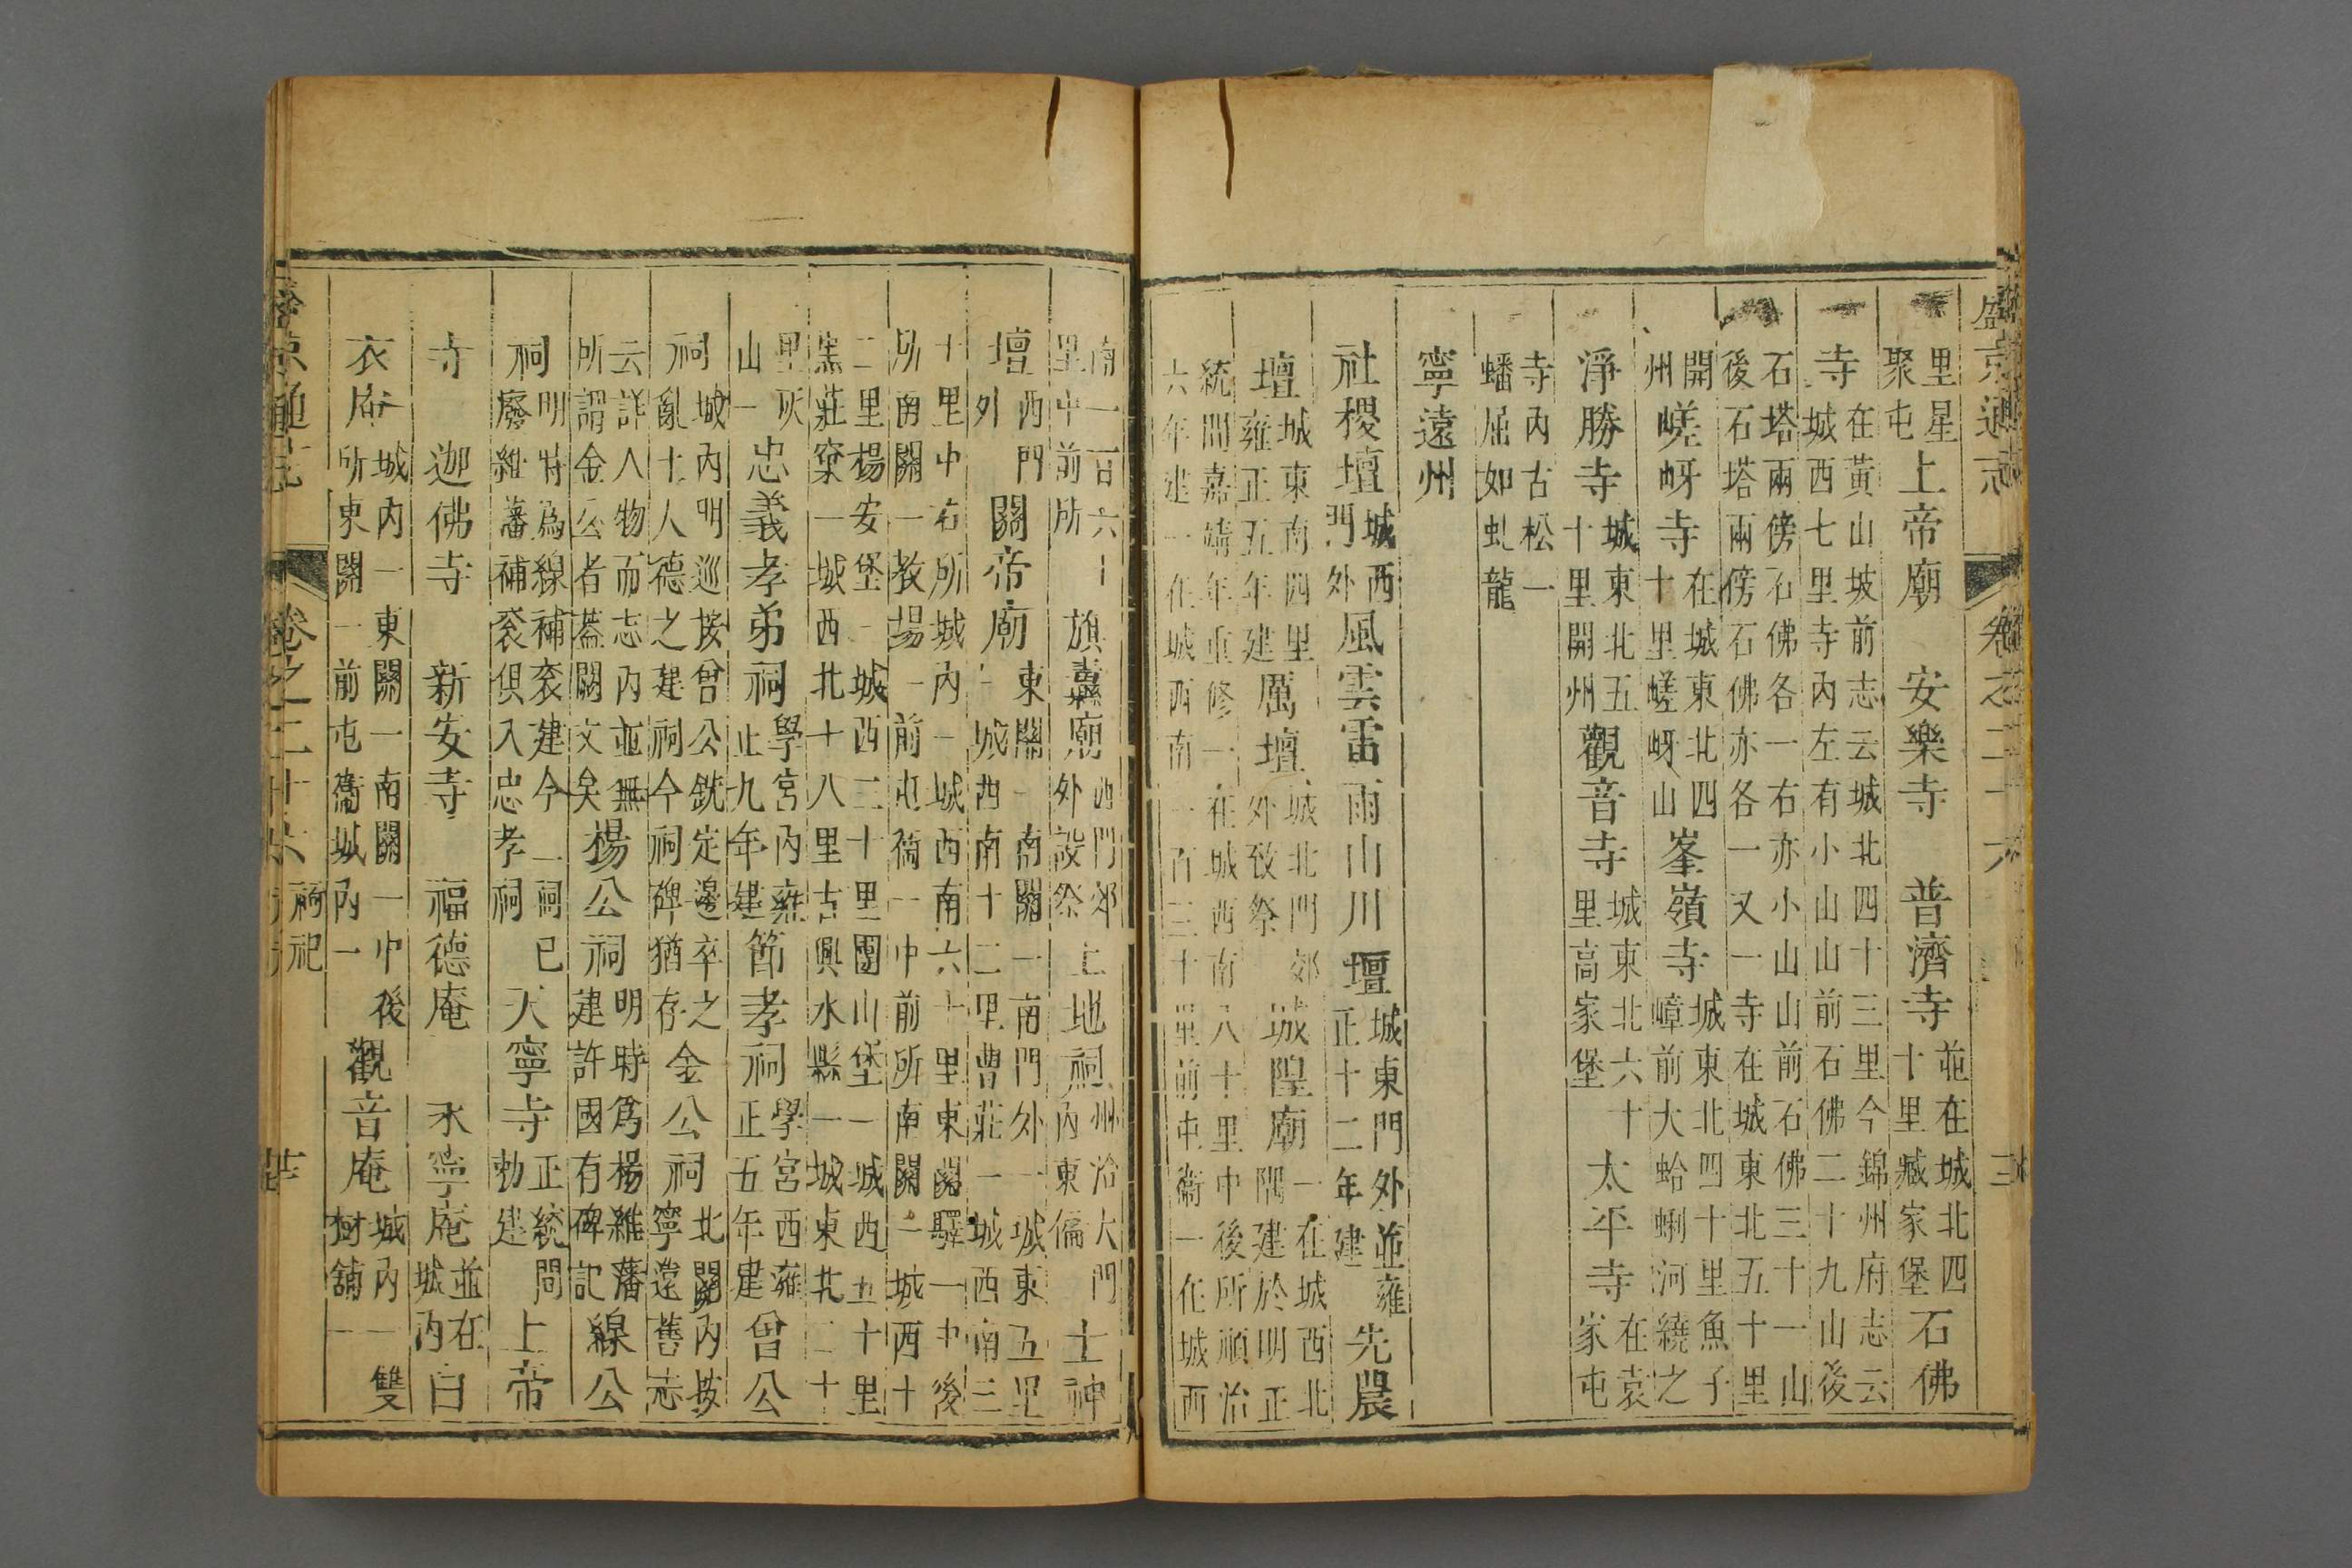 盛京通志 卷之二十六 三
里星聚屯上帝廟 安樂寺 普濟寺並在城北四十里臧家堡石佛
寺在黃山坡前志云城北四十三里今錦州府志云城西七里寺內左有小山山前石佛二十九山後
石塔兩傍石佛各一右亦小山山前石佛三十一山後石塔兩傍石佛亦各一又一寺在城東北五十里
開州嵯岈寺在城東北四十里嵯岈山峯嶺寺城東北四十里魚子嶂前大蛤蜊河繞之
淨勝寺城東北五十里開州觀音寺城東北六十里高家堡太平寺在袁家屯
寺內古松一蟠屈如虬龍
寧遠州
社稷壇城西門外風雲雷雨山川壇城東門外並雍正十二年建先農
壇城東南四里雍正五年建厲壇城北門郊外致祭城隍廟一在城西北隅建於明正
統間嘉靖年重修一在城西南八十里中後所順治六年建一在城西南一百三十里前屯衛一在城西
南一百六十里中前所旗纛廟西門郊外設祭土地祠州治大門內東偏土神
壇西門外關帝廟東關一南關一南門外一城東五里一城西南十二里曹莊一城西南三
十里中右所城內一城西南六十里東關驛一中後所南關一教場一前屯衞一中前所南關一城西十
二里楊安堡一城西二十里團山堡一城西五十里窯莊窠一城西北十八里古興水縣一城東北二十
里灰山一忠義孝弟祠學宮內雍正九年建節孝祠學宮西雍正五年建曾公
祠城內明巡按曾公銑定邊卒之亂士人德之建祠今祠碑猶存金公祠北關內按寧遠舊志
云詳人物而志內並無所謂金公者蓋闕文矣楊公祠明時爲楊維藩建許國有碑記線公
祠明特爲線補袞建今祠已廢維藩補袞俱入忠孝祠天寧寺正統間勅建上帝
寺 迦佛寺 新安寺 福德庵 永寧庵並在城內白
衣庵城內一東關一南關一中後所東關一前屯衞城內一觀音庵城內一雙樹舖一
盛京通志 卷之二十六 祠祀